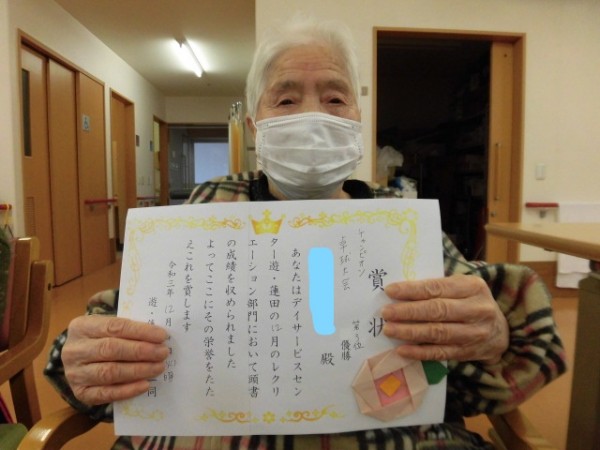 チャンピオン
卓球大会
賞状
優勝
殿
あなたはデイサービスセン
ター遊・蓮田の12月のレクリ
エーション部門において頭書
の成績を収められました
よってここにその栄誉をたた
えこれを賞します
令和三年12月
遊・